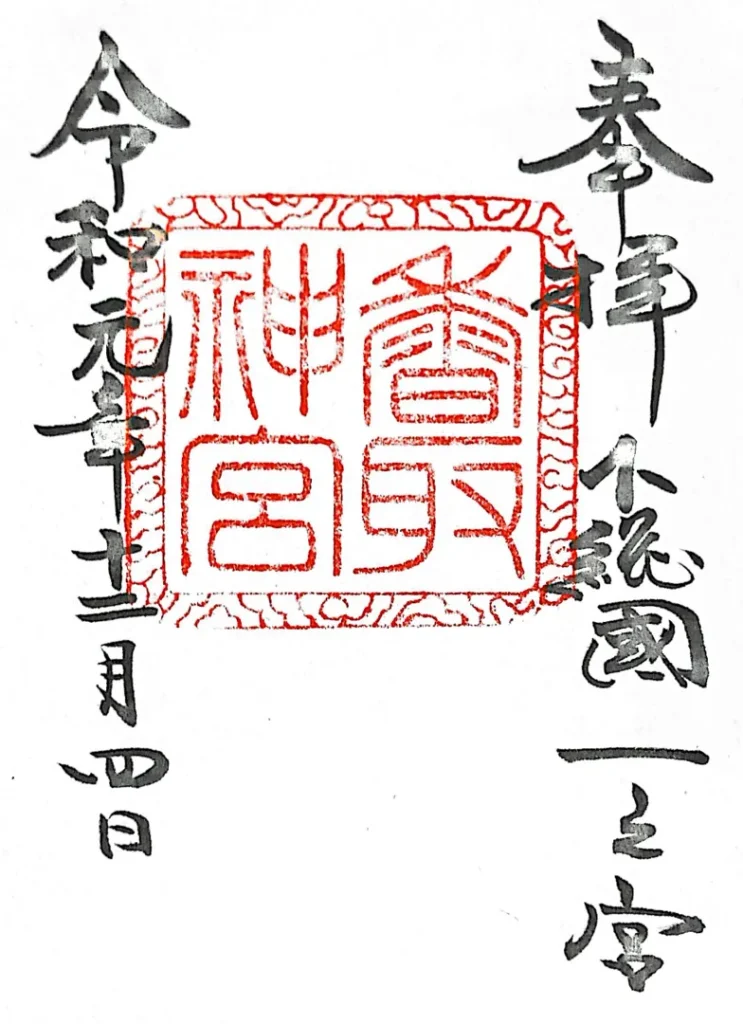 奉拝 下総國一之宮
香取
神宮
令和元年十二月四日